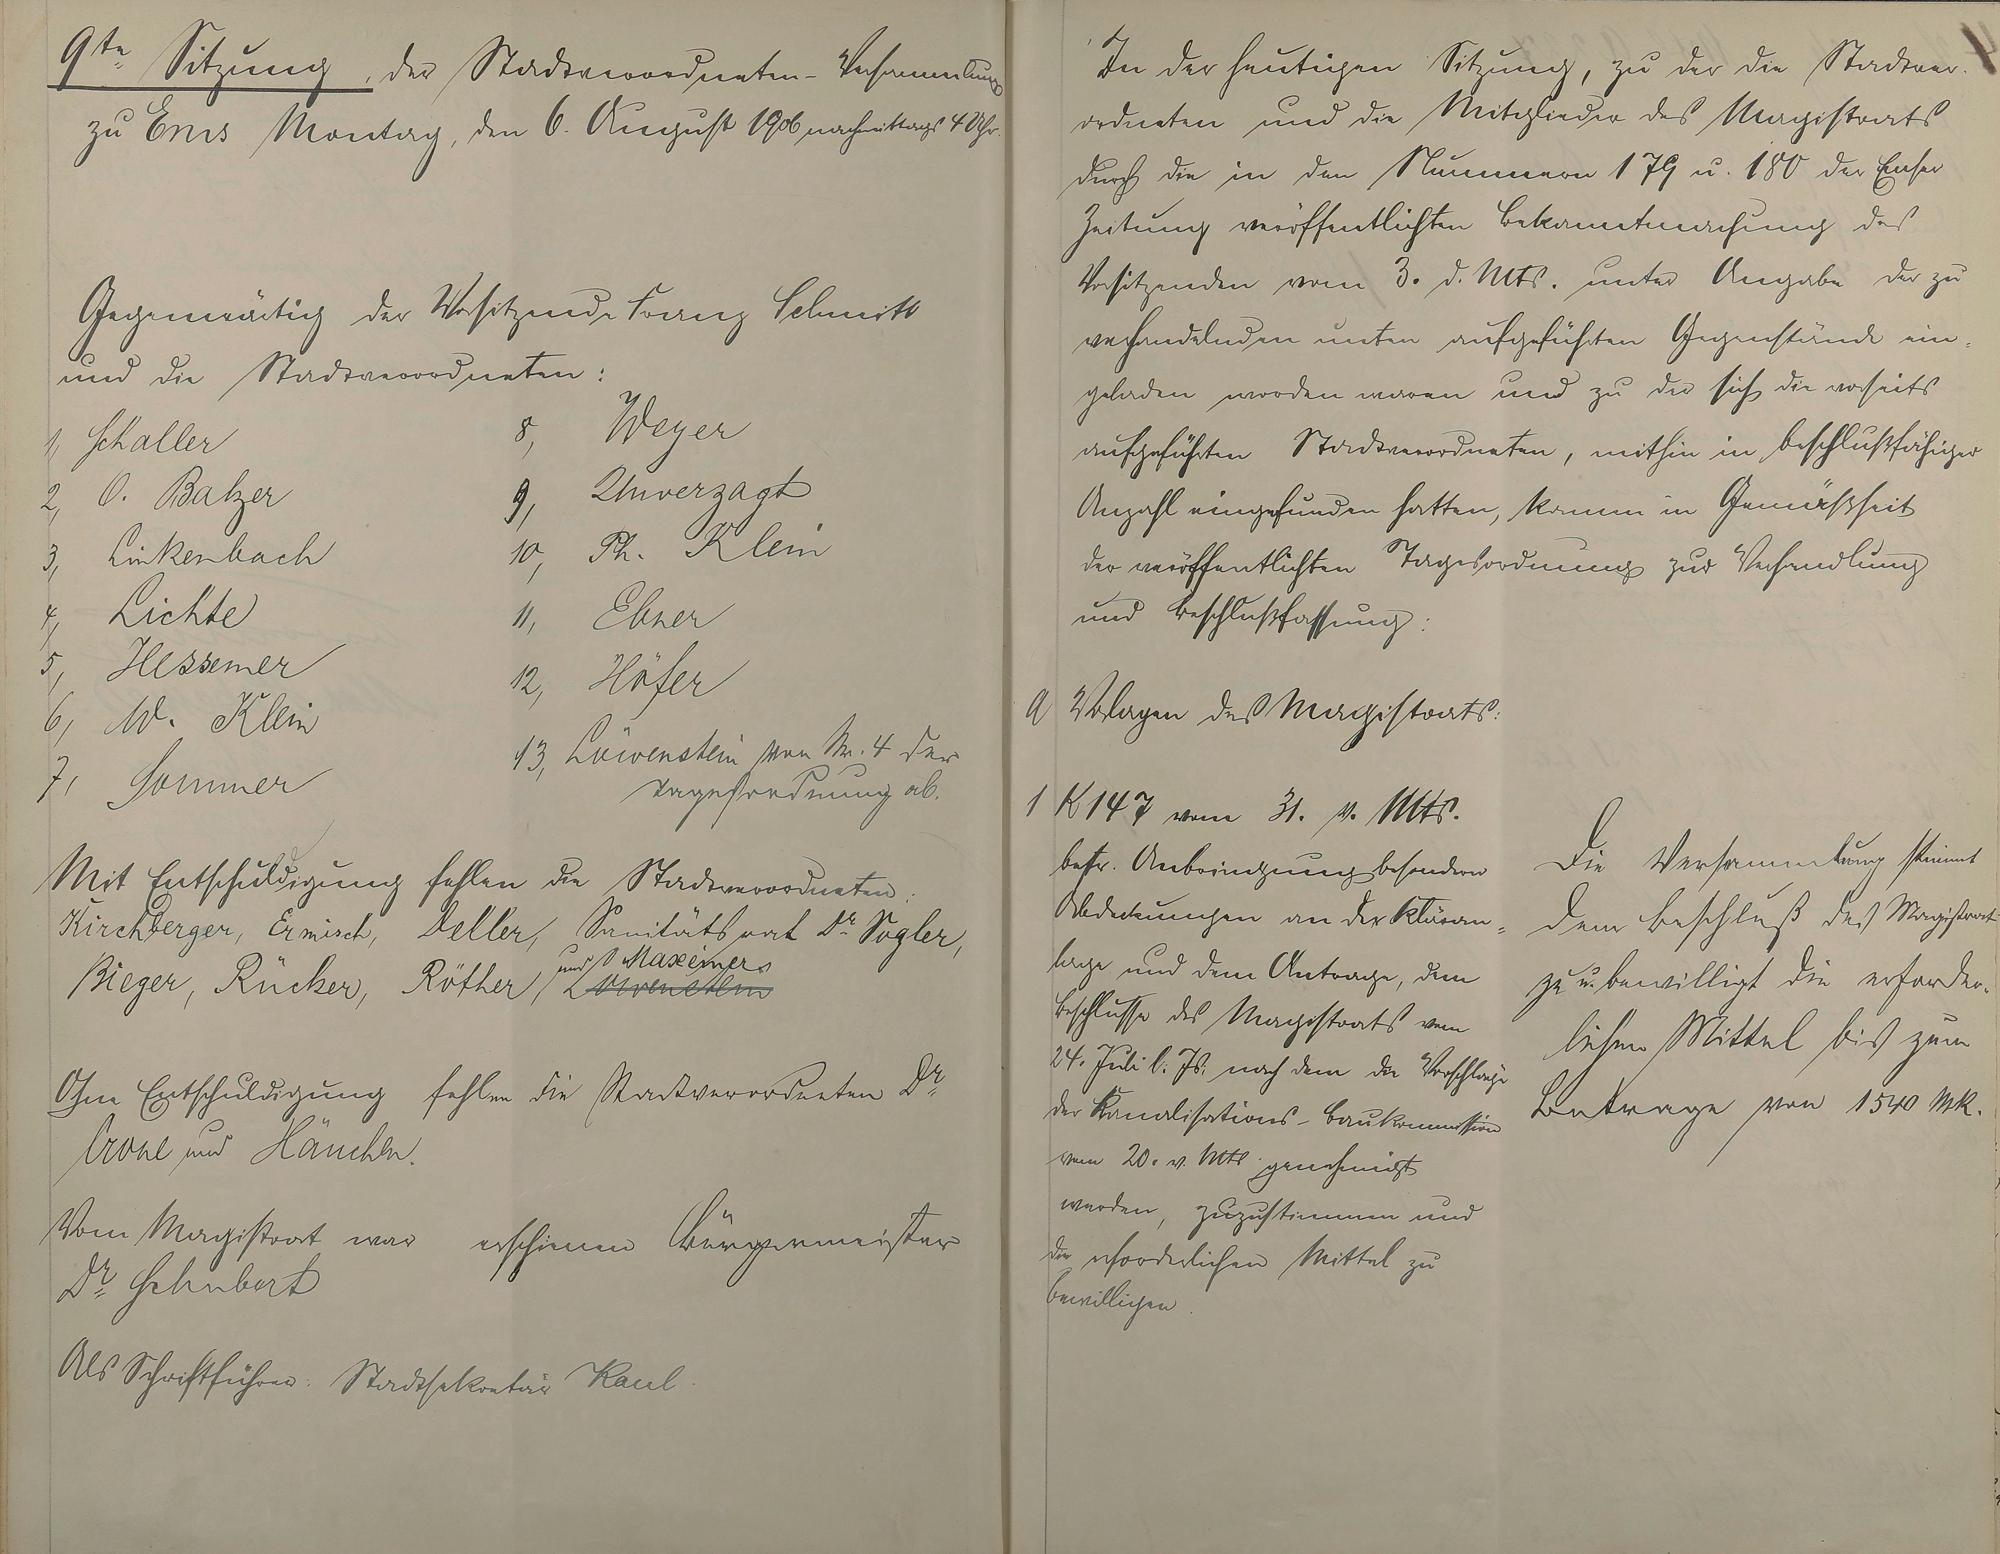 9te Sitzung, der Stadtverordneten-Versammlung
zu Ems Montag, den 6. August 1906 nachmittags 4 Uhr.
Gegenwärtig der Vorsitzende Franz Schmitt
und die Stadtverordneten:
1, Schaller
2, O. Balzer
3, Linkenbach
4, Lichte
5, Hessemer
6, W. Klein
7, Sommer
8, Weyer
9, Unverzagt
10, Ph. Klein
11, Ebner
12, Höfer
13, Löwenstein von Nr. 4 der
Tagesordnung ab.
Mit Entschuldigung fehlen die Stadtverordneten:
Kirchberger, Ermisch, Deller, Sanitätsrat Dr. Vogler,
und Maxeiner
Bieger, Rücker, Röther, Löwenstein
Ohne Entschuldigung fehlen die Stadtverordneten Dr.
Crone und Hänchen.
Vom Magistrat war erschienen Bürgermeister
Dr. Schubert
Als Schriftführer: Stadtsekretär Kaul.
In der heutigen Sitzung, zu der die Stadtver-
ordneten und die Mitglieder des Magistrats
durch die in den Nummern 179 u. 180 der Emser
Zeitung veröffentlichten Bekanntmachung des
Vorsitzenden vom 3. d. Mts. unter Angabe der zu
verhandelnden unten aufgeführten Gegenstände ein-
geladen worden waren und zu der sich die vorseits
aufgeführten Stadtverordneten, mithin in beschlußfähiger
Anzahl eingefunden hatten, kamen in Gemäßheit
der veröffentlichten Tagesordnung zur Verhandlung
und Beschlußfassung:
a Vorlagen des Magistrats:
1 K 147 vom 31. v. Mts.
betr. Anbringung besonderer
Abdeckungen an der Kläran-
lage und dem Antrage, dem
Beschlusse des Magistrats vom
24. Juli l. Js. nach dem die Vorschläge
der Kanalisations-Baukommission
vom 20. v. Mts. genehmigt
werden, zuzustimmen und
die erforderlichen Mittel zu
bewilligen.
Die Versammlung stimmt
dem Beschluß des Magistrats
zu u. bewilligt die erforder-
lichen Mittel bis zum
Betrage von 1540 Mk.